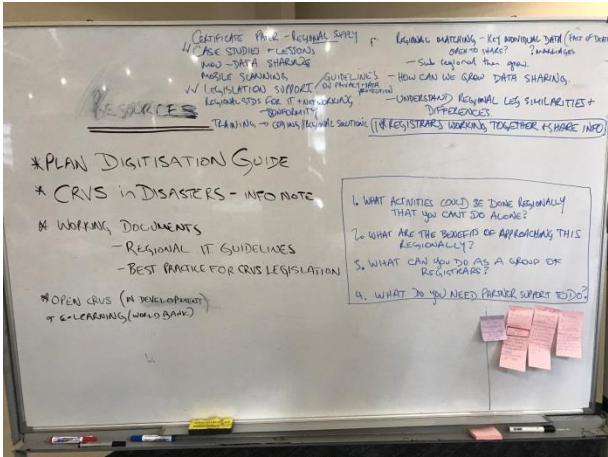 CERTIFICATE PAPER - REGIONAL SUPPLY
CASE STUDIES + LESSONS
MOU - DATA SHARING
MOBILE SCANNING
LEGISLATION SUPPORT / GUIDELINES ON PRIVACY + DATA PROTECTION
REGIONAL STDS FOR IT + NETWORKING
- CONFORMITY
TRAINING → CODING / REGIONAL SOLUTIONS
REGIONAL MATCHING - KEY INDIVIDUAL DATA (FACT OF DEATH
OPEN TO SHARE? ? MARRIAGES
- Sub regional then grow.
- HOW CAN WE GROW DATA SHARING.
- UNDERSTAND REGIONAL LEG SIMILARITIES +
DIFFERENCES
* REGISTRARS WORKING TOGETHER + SHARE INFO
RESOURCES
* PLAN DIGITISATION GUIDE
* CRVS in DISASTERS - INFO NOTE
* WORKING DOCUMENTS
- REGIONAL IT GUIDELINES
- BEST PRACTICE FOR CRVS LEGISLATION
* OPEN CRVS (IN DEVELOPMENT)
* E-LEARNING (WORLD BANK)
1. WHAT ACTIVITIES COULD BE DONE REGIONALLY
THAT YOU CANT DO ALONE?
2. WHAT ARE THE BENEFITS OF APPROACHING THIS
REGIONALLY?
3. WHAT CAN YOU DO AS A GROUP OF
REGISTRARS?
4. WHAT DO YOU NEED PARTNER SUPPORT TO DO?